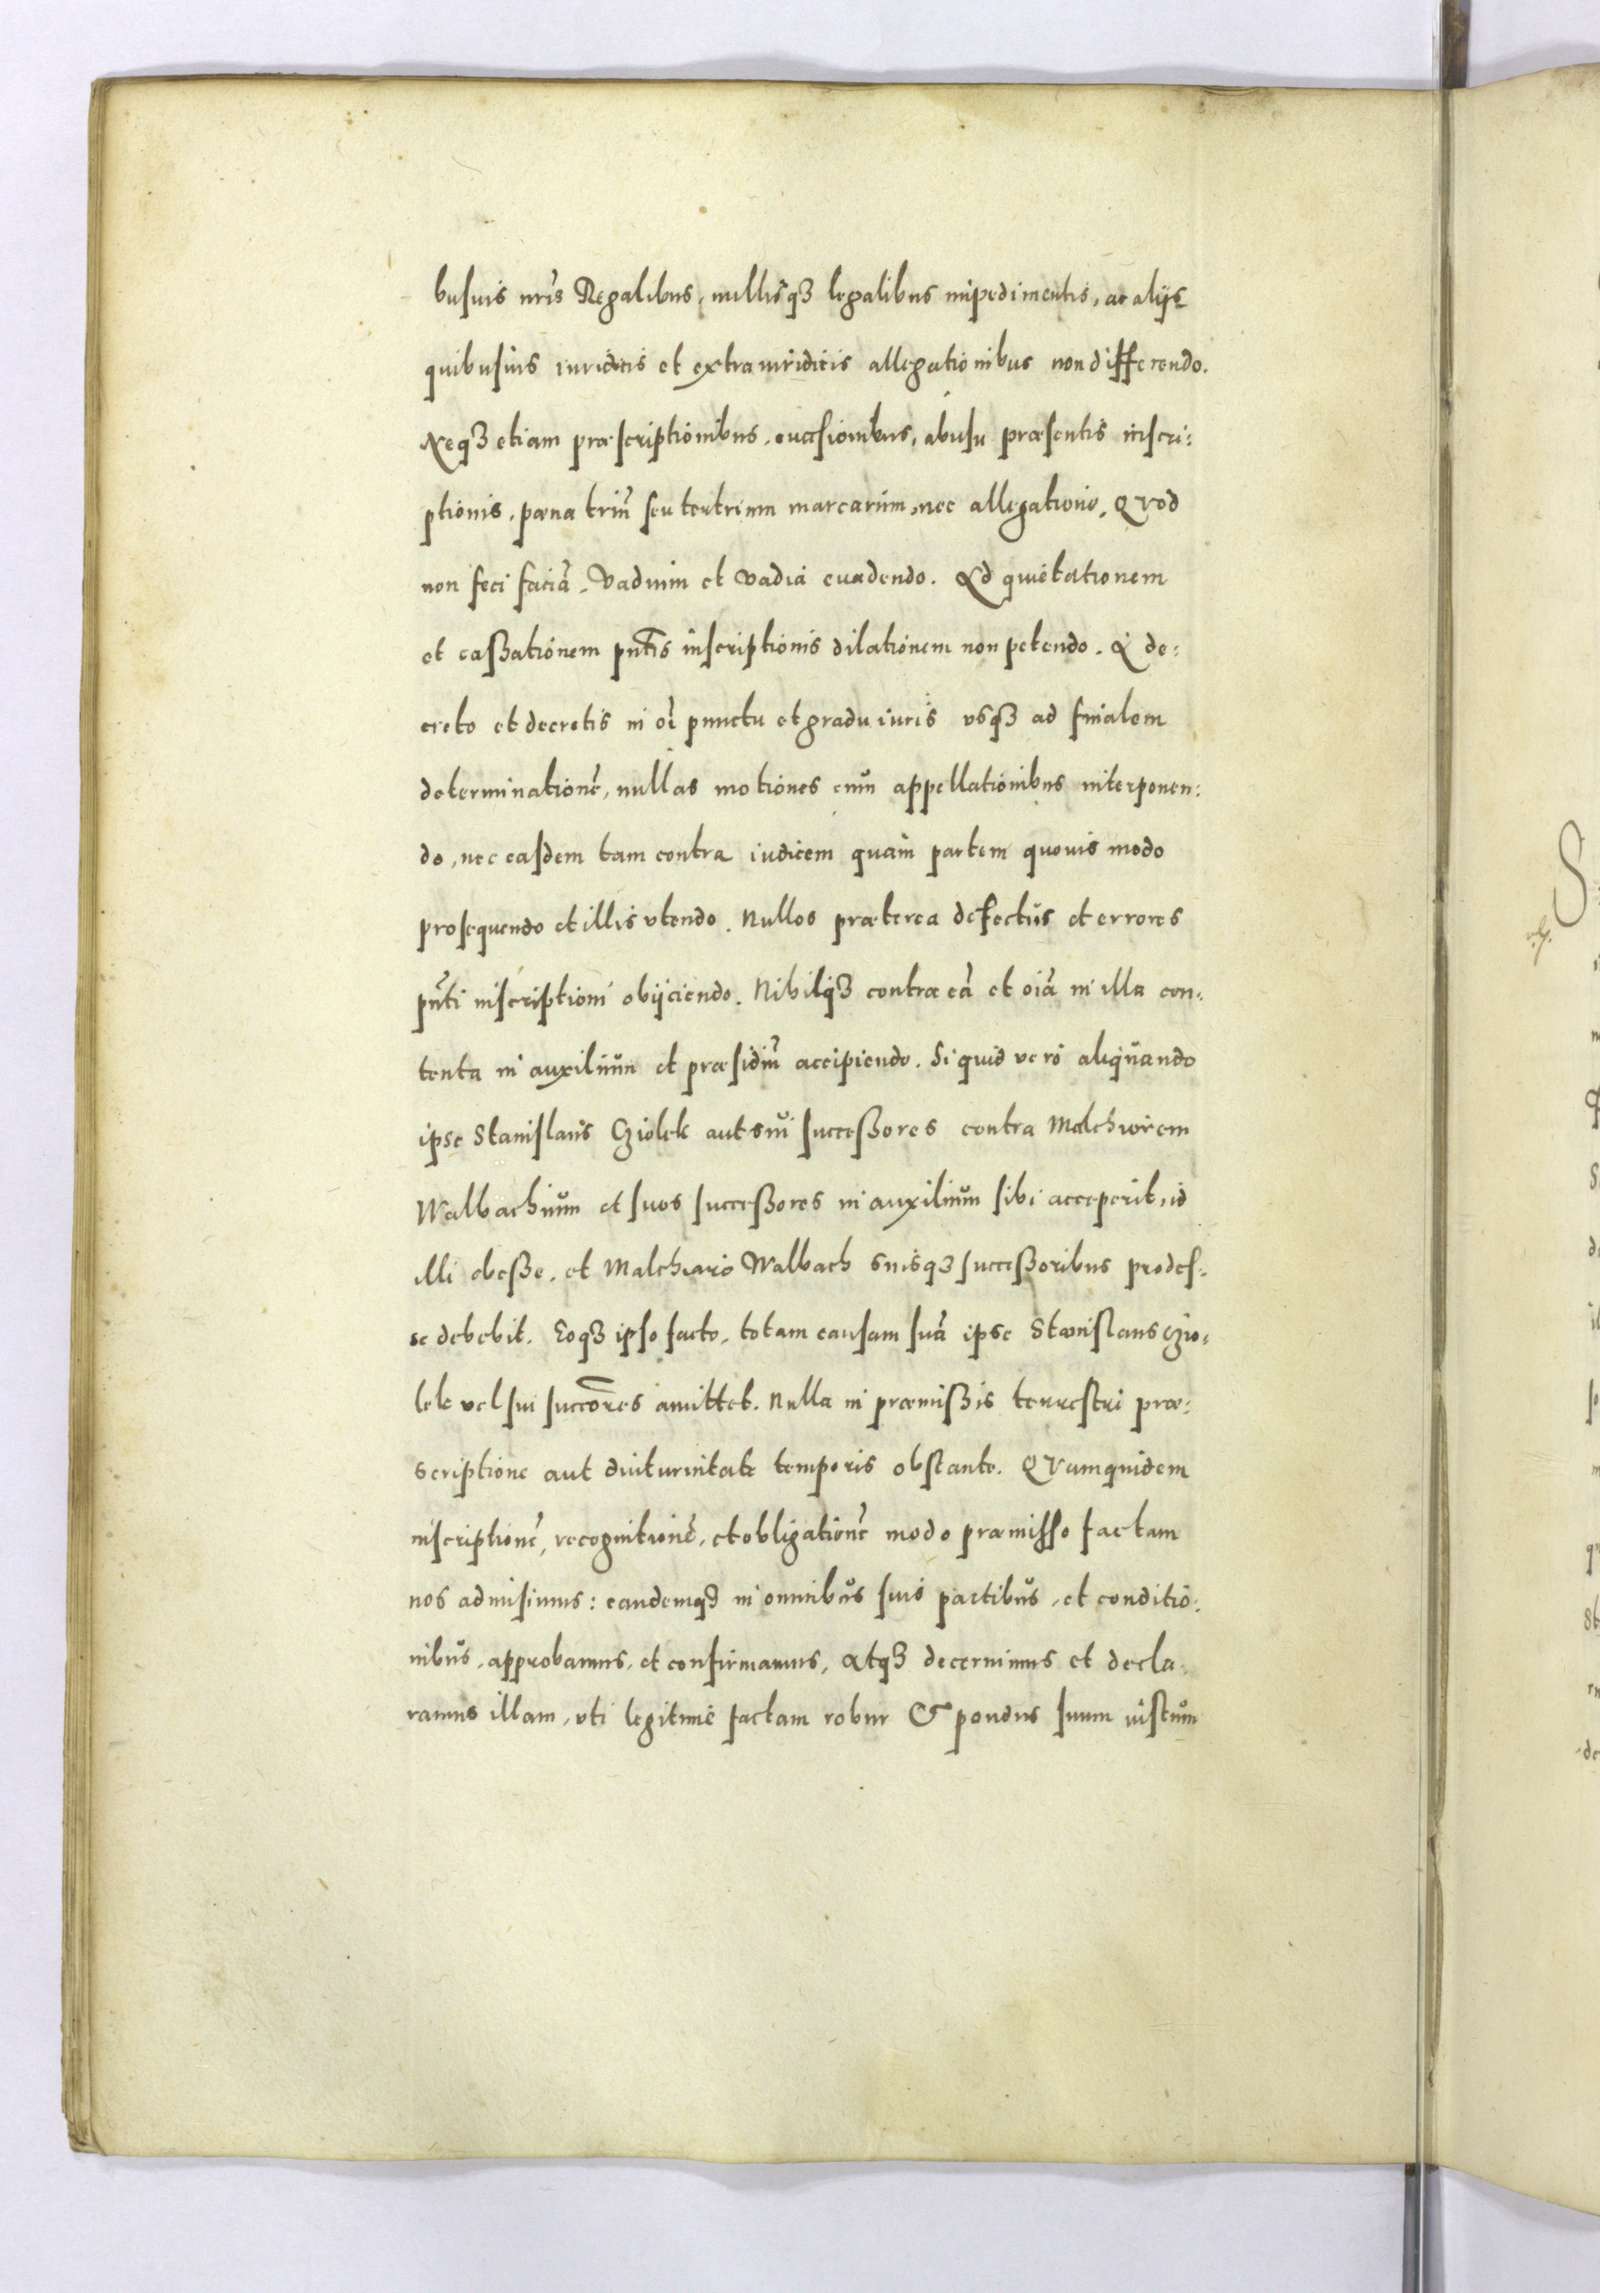 busuis nr̃is Regalibus, nullisq3 legalibus impedimentis, ac alijs
quibusuis iuridicis et extraiuridicis allegationibus non differendo.
Neq3 etiam præscriptionibus, euasionibus, abusu præsentis inscri:
ptionis, pæna triũ seu tertrium marcarum, nec allegatione, Quod
non feci faciã, Vadium et vadia euadendo. Ad quietationem
et caßationem pñtis inscriptionis dilationem non petendo. A de:
creto et decretis in oĩ punctu et gradu iuris vsq3 ad finalem
determinationẽ, nullas motiones cum appellationibus interponen:
do, nec easdem tam contra iudicem quam partem quouis modo
prosequendo et illis vtendo. Nullos præterea defectus et errores
pñti inscriptioni obijciendo. Nihilq3 contra eã et oĩa in illa con:
tenta in auxilium et præsidiũ accipiendo. Si quid vero aliquando
ipse Stanislaus Cziolek aut sui succeßores contra Malchiorem
Walbachium et suos succeßores in auxilium sibi acceperit, id
illi obeße, et Malchiaro Walbach suisq3 succeßoribus prodes:
se debebit. Eoq3 ipso facto, totam causam suã ipse Stanislaus Czio:
lek vel sui succores amittet. Nulla in præmißis terrestri præ:
scriptione aut diuturnitate temporis obstante. Quamquidem
inscriptionẽ, recognitionẽ, et obligationẽ modo præmisso factam
nos admisimus: eandemq3 in omnibus suis partibus, et conditio:
nibus, approbamus, et confirmamus, atq3 decernimus et decla:
ramus illam, vti legitime factam robur & pondus suum iustum